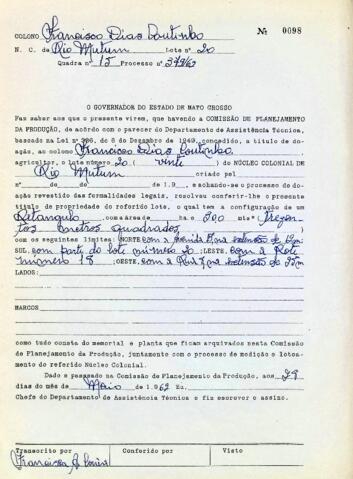 COLONO Francisco Dias Coutinho Nº 0098
N. C. de Rio Mutum Lote nº 20
Quadra nº 15 Processo nº 373/62
O GOVERNADOR DO ESTADO DE MATO GROSSO
Faz saber aos que o presente virem, que havendo a COMISSÃO DE PLANEJAMENTO
DA PRODUÇÃO, de acôrdo com o parecer do Departamento de Assistência Técnica,
baseado na Lei nº 336, de 6 de Dezembro de 1949, concedido, a título de do-
ação, ao colono Francisco Dias Coutinho
agricultor, o lote número 20 ( vinte ) do NÚCLEO COLONIAL DE
Rio Mutum criado pel
nº de de de 1.9 , e achando-se o processo de do-
ação revestido das formalidades legais, resolveu conferir-lhe o presente
título de propriedade do referido lote, o qual tem a configuração de um
Retangulo com a área de ha. e 300 mts (trezen-
tos metros quadrados )
com os seguintes limites: NORTE, com a Avenida na extensão de 12m:
SUL, com parte do lote número 20 : LESTE, com o lote
número 18 : OESTE, com a Rua na extensão de 25m
LADOS:
MARCOS
como tudo consta do memorial e planta que ficam arquivados nesta Comissão
de Planejamento da Produção, juntamente com o processo de medição e lotea-
mento do referido Núcleo Colonial.
Dado e passado na Comissão de Planejamento da Produção, aos 29
dias do mês de Maio de 1.962 Eu,
Chefe do Departamento de Assistência Técnica o fiz escrever e assino.
Transcrito por Conferido por Visto
Francisca